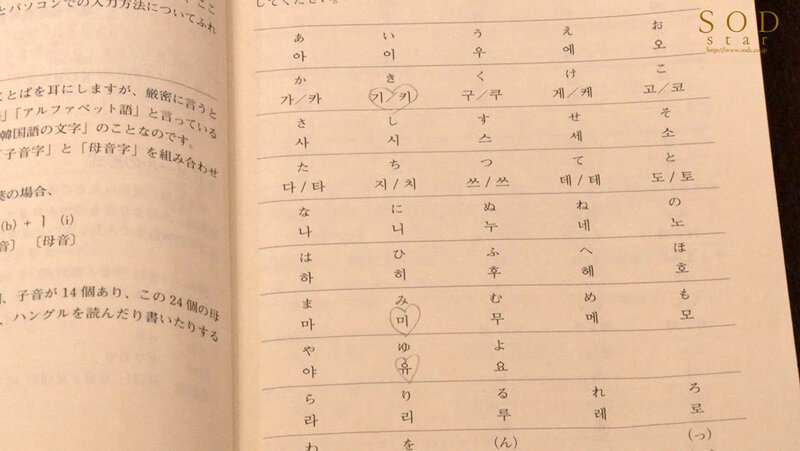 とパソコンでの入力方法についてふれ
ことばを耳にしますが、厳密に言うと
」「アルファベット語」と言っている
韓国語の文字」のことなのです。
「子音字」と「母音字」を組み合わせ
の場合、
(b) + ㅣ (i)
音〕 〔母音〕
、子音が14個あり、この24個の母
、ハングルを読んだり書いたりする
してください。
あ い う え お
아 이 우 에 오
か き く け こ
가/카 기/키 구/쿠 게/케 고/코
さ し す せ そ
사 시 스 세 소
た ち つ て と
다/타 지/치 쓰/쓰 데/테 도/토
な に ぬ ね の
나 니 누 네 노
は ひ ふ へ ほ
하 히 후 헤 호
ま み む め も
마 미 무 메 모
や ゆ よ
야 유 요
ら り る れ ろ
라 리 루 레 로
わ を (ん) (っ)
SOD
star
https://www.sodc.co.jp